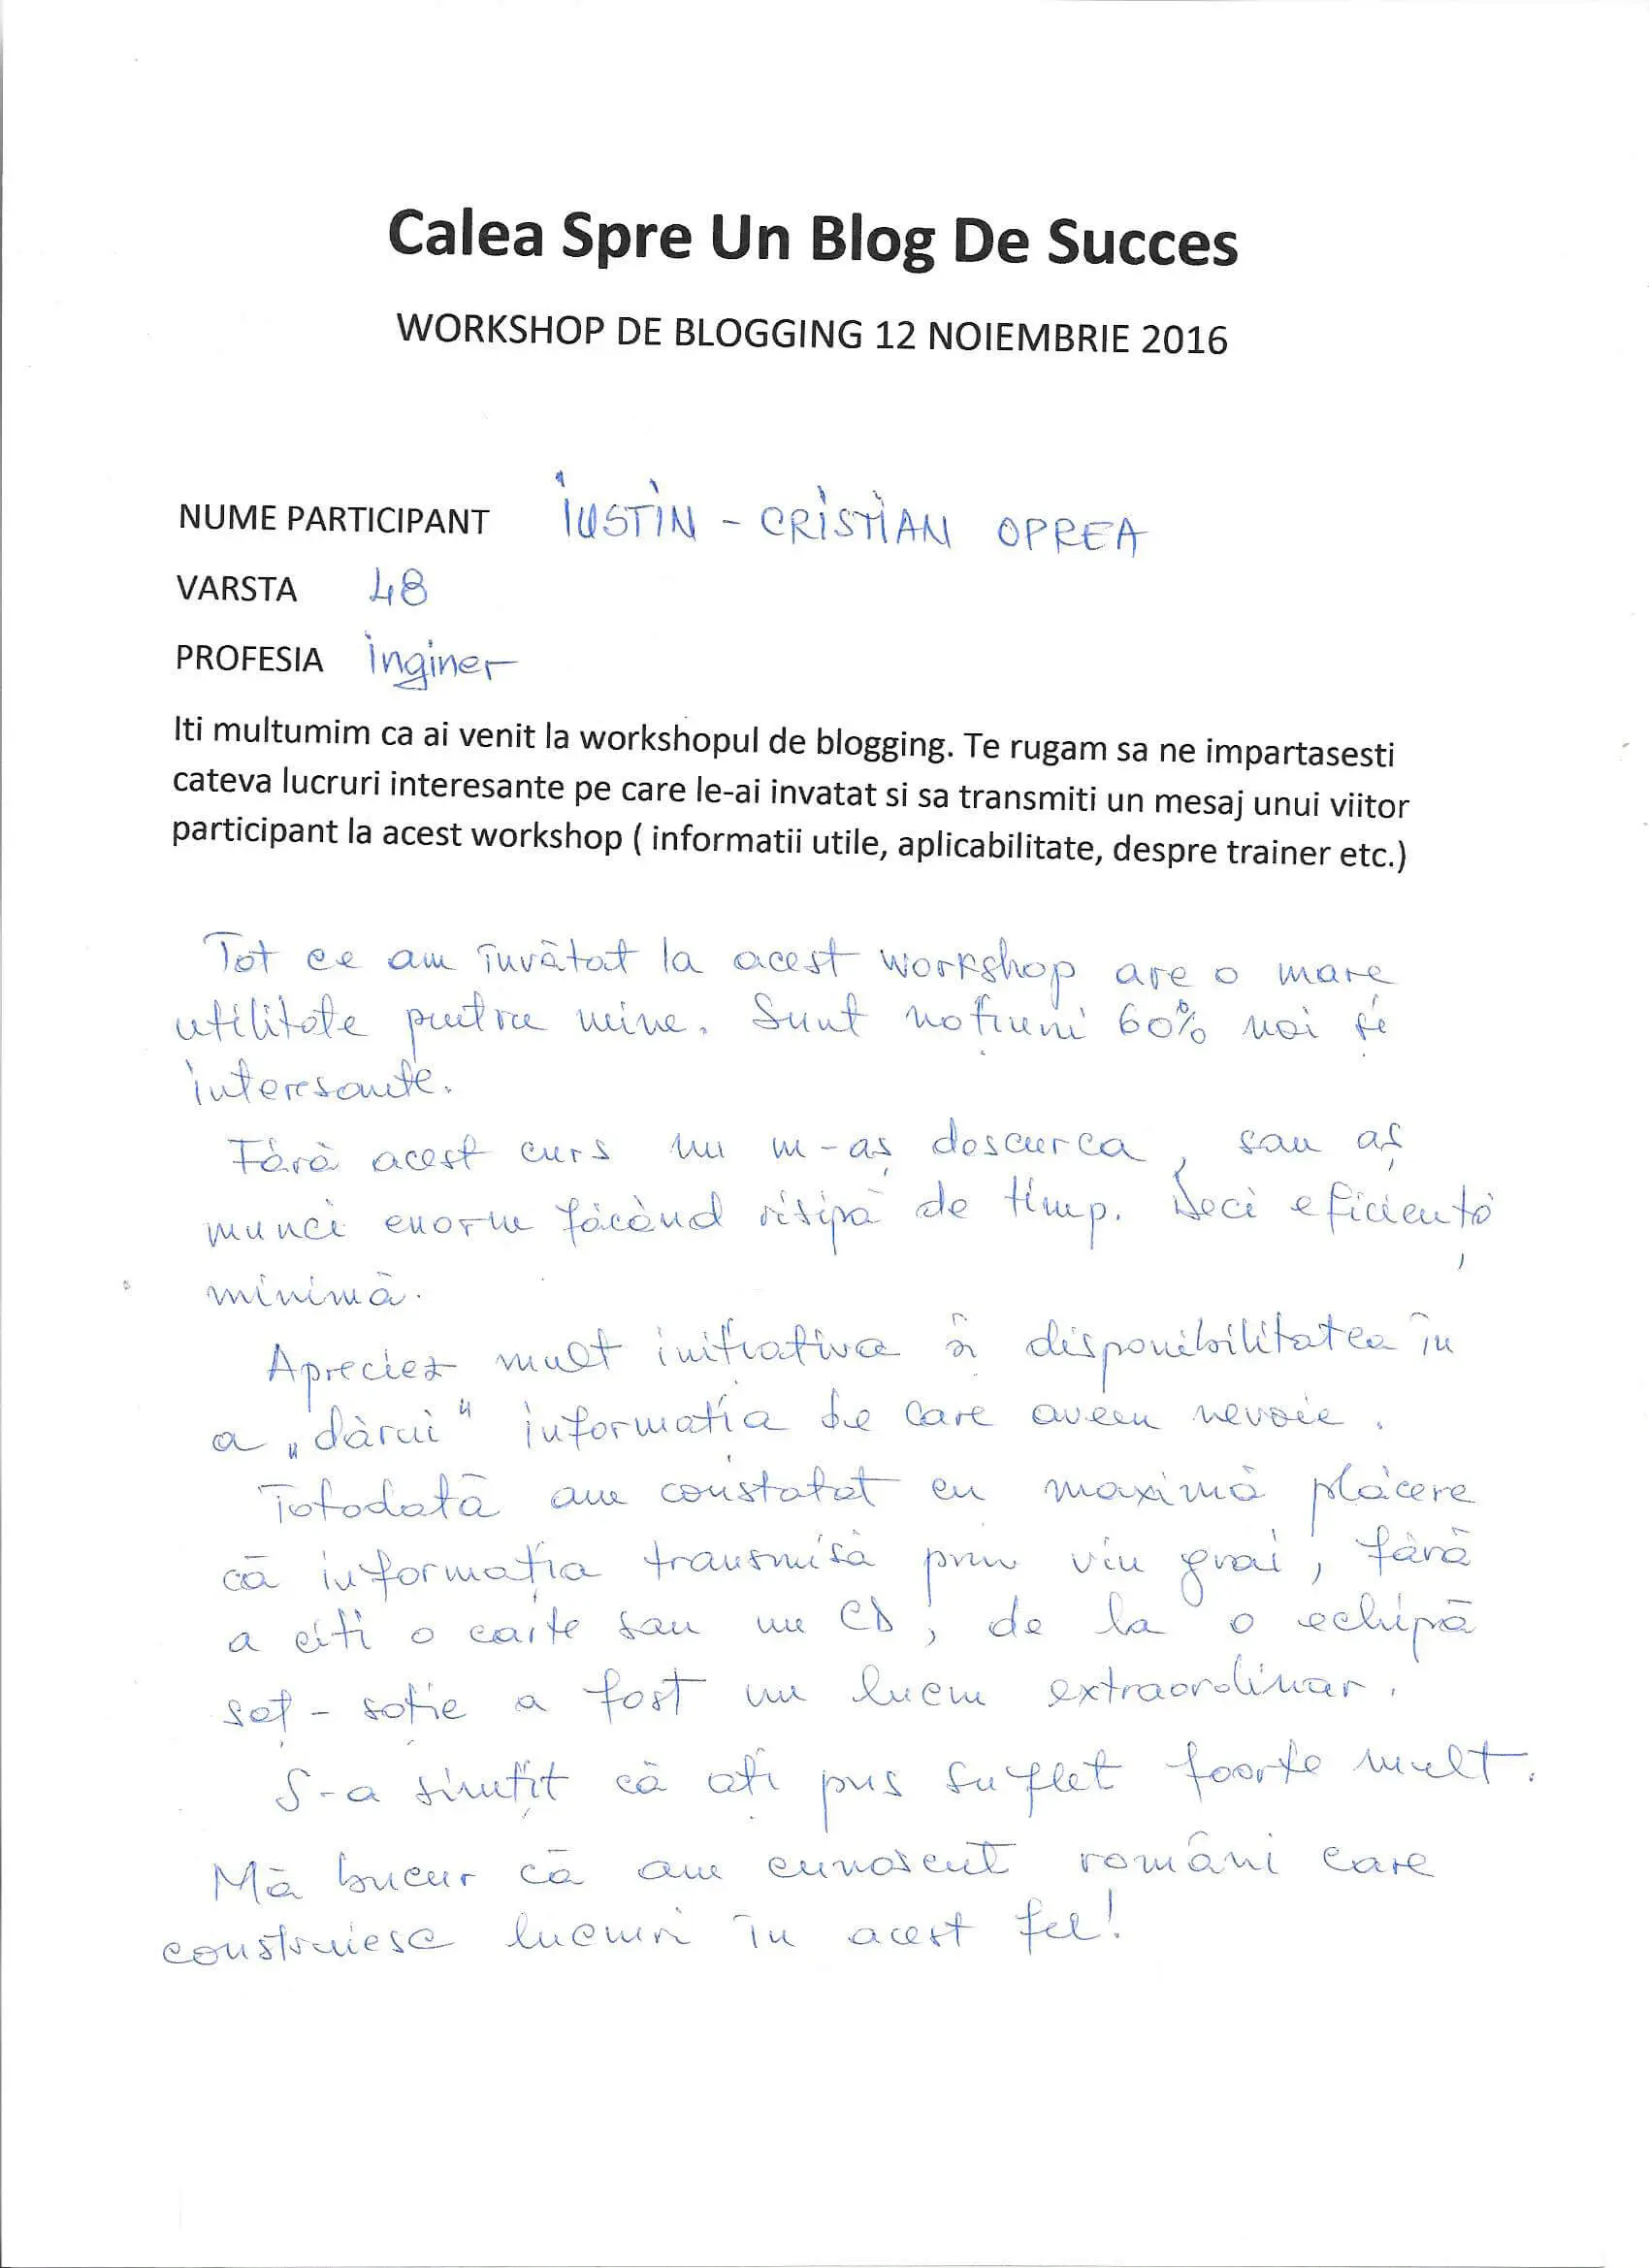 Calea Spre Un Blog De Succes
WORKSHOP DE BLOGGING 12 NOIEMBRIE 2016
NUME PARTICIPANT IUSTIN - CRISTIAN OPREA
VARSTA 48
PROFESIA inginer
Iti multumim ca ai venit la workshopul de blogging. Te rugam sa ne impartasesti
cateva lucruri interesante pe care le-ai invatat si sa transmiti un mesaj unui viitor
participant la acest workshop ( informatii utile, aplicabilitate, despre trainer etc.)
Tot ce am învătat la acest workshop are o mare
utilitate pentru mine. Sunt noțiuni 60% noi și
interesante.
Fără acest curs nu m-aș descurca, sau aș
munci enorm făcând risipă de timp. Deci eficiență
minimă.
Apreciez mult inițiativa și disponibilitatea în
a „dărui" informația de care aveam nevoie.
Totodată am constatat cu maximă plăcere
că informația transmisă prin viu grai, fără
a citi o carte sau un CD, de la o echipă
soț - soție a fost un lucru extraordinar.
S-a simțit că ați pus suflet foarte mult.
Mă bucur că am cunoscut români care
construiesc lucruri în acest fel!